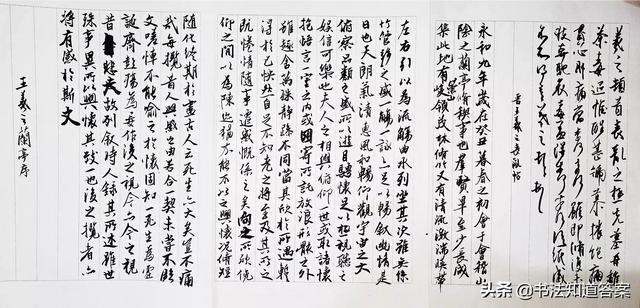 羲之頓首喪亂之極先墓再離
荼毒追惟酷甚號慕摧絕痛
貫心肝痛當奈何奈何雖即脩復未
獲奔馳哀毒益深奈何奈何臨紙感
哽不知何言羲之頓首頓首
晉王羲之喪亂帖
永和九年歲在癸丑暮春之初會于會稽山
陰之蘭亭脩稧事也羣賢畢至少長咸
集此地有崇山峻領茂林脩竹又有清流激湍暎帶
左右引以為流觴曲水列坐其次雖無絲
竹管弦之盛一觴一詠亦足以暢敘幽情是
日也天朗氣清惠風和暢仰觀宇宙之大
俯察品類之盛所以遊目騁懷足以極視聽之
娛信可樂也夫人之相與俯仰一世或取諸懷
抱悟言一室之內或因寄所託放浪形骸之外
雖趣舍萬殊靜躁不同當其欣於所遇暫
得於己快然自足不知老之將至及其所之
既惓情隨事遷感慨係之矣向之所欣俛
仰之間以為陳迹猶不能不以之興懷況脩短
隨化終期於盡古人云死生亦大矣豈不痛
哉每攬昔人興感之由若合一契未嘗不臨
文嗟悼不能喻之於懷固知一死生為虛
誕齊彭殤為妄作後之視今亦今之視
昔悲夫故列敘時人錄其所述雖世
殊事異所以興懷其致一也後之攬者亦
將有感於斯文
王羲之蘭亭序
头条 @书法知道答案